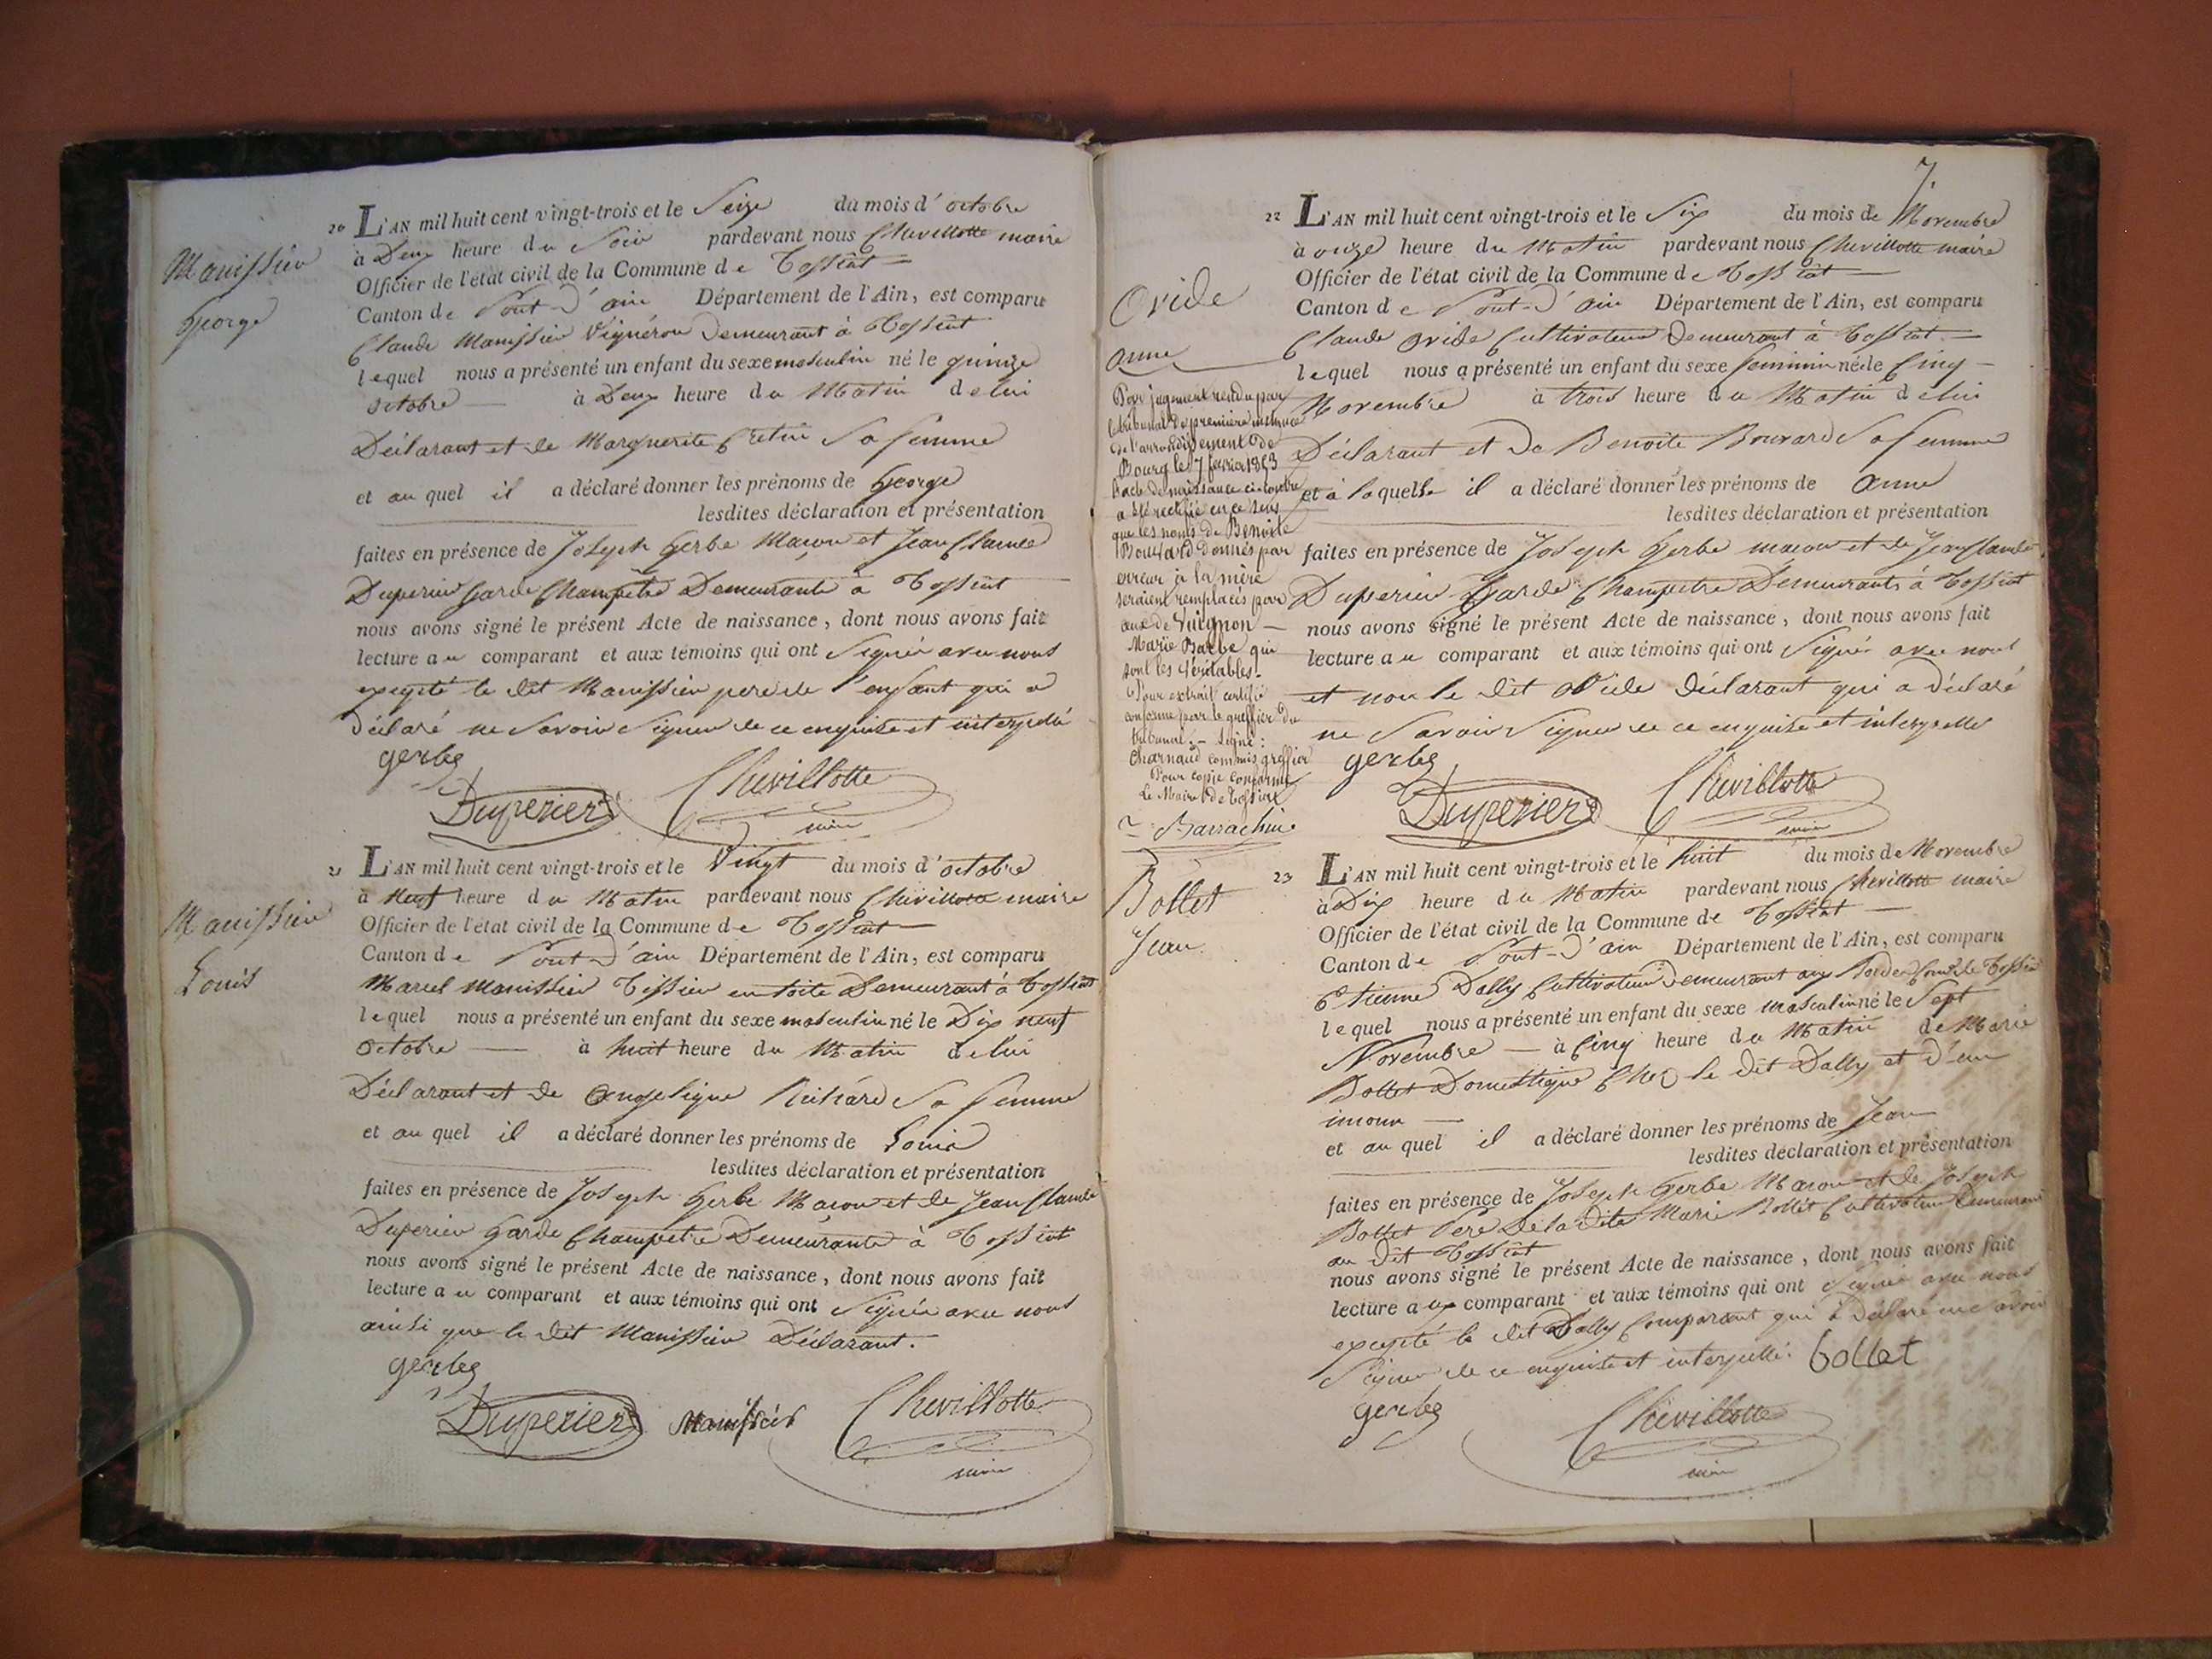 20 L'AN mil huit cent vingt-trois et le Seize du mois d'octobre
Manissier
George
à Deux heure du Soir pardevant nous Chevillotte maire
Officier de l'état civil de la Commune de Tossiat
Canton de Pont-D'ain Département de l'Ain, est comparu
Claude Manissier Vigneron Demeurant à Tossiat
lequel nous a présenté un enfant du sexe masculin né le quinze
octobre à Deux heure du Matin de lui
Déclarant et de Marguerite Cretin Sa femme
et au quel il a déclaré donner les prénoms de George
lesdites déclaration et présentation
faites en présence de Joseph Gerbe Maçon et Jean Claude
Duperier Garde Champêtre Demeurants à Tossiat
nous avons signé le présent Acte de naissance, dont nous avons fait
lecture au comparant et aux témoins qui ont Signés avec nous
excepté le dit Manissier pere de l'enfant qui a
Déclaré ne Savoir Signer de ce enquise et interpellé
gerbe
Duperier Chevillotte
maire
21 L'AN mil huit cent vingt-trois et le Vingt du mois d'octobre
Manissier
Louis
à Neuf heure du Matin pardevant nous Chevillotte maire
Officier de l'état civil de la Commune de Tossiat
Canton de Pont-D'ain Département de l'Ain, est comparu
Marcel Manissier Tissier en toile Demeurant à Tossiat
lequel nous a présenté un enfant du sexe masculin né le Dix neuf
Octobre à huit heure du Matin de lui
Déclarant et de Angelique Richard Sa femme
et au quel il a déclaré donner les prénoms de Louis
lesdites déclaration et présentation
faites en présence de Joseph Gerbe Macon et de Jean Claude
Duperier Garde Champetre Demeurants à Tossiat
nous avons signé le présent Acte de naissance, dont nous avons fait
lecture au comparant et aux témoins qui ont Signés avec nous
ainsi que le dit Manissier Déclarant.
gerbe
Duperier Manissier Chevillotte
maire
7.
22 L'AN mil huit cent vingt-trois et le Six du mois de Novembre
à onze heure du Matin pardevant nous Chevillotte maire
Officier de l'état civil de la Commune de Tossiat
Canton de Pont-D'ain Département de l'Ain, est comparu
Claude Ovide Cultivateur Demeurant à Tossiat
lequel nous a présenté un enfant du sexe feminin né le Cinq
Novembre à trois heure du Matin de lui
Déclarant et de Benoite Bouvard Sa femme
et à laquelle il a déclaré donner les prénoms de Anne
lesdites déclaration et présentation
faites en présence de Joseph Gerbe macon et de Jean Claude
Duperier Garde Champetre Demeurants à Tossiat
nous avons signé le présent Acte de naissance, dont nous avons fait
lecture au comparant et aux témoins qui ont Signés avec nous
et non le dit Ovide Déclarant qui a déclaré
ne Savoir Signer de ce enquise et interpellé
gerbe
Duperier Chevillotte
maire
Ovide
anne
Par jugement rendu par
le tribunal de première instance
de l'arrondissement de
Bourg le 7 fevrier 1853
l'acte de naissance ci-contre
a été rectifié en ce sens
que les noms de Benoite
Bouvard donnés par
erreur à la mère
seraient remplacés par
ceux de Vuignon
Marie Barbe qui
sont les véritables.
Pour extrait certifié
conforme par le greffier du
tribunal. - Signé:
Charnaud commis greffier
Pour copie conforme
Le Maire de Tossiat
Barrachin
23 L'AN mil huit cent vingt-trois et le huit du mois de Novembre
Bollet
Jean
à Dix heure du Matin pardevant nous Chevillotte maire
Officier de l'état civil de la Commune de Tossiat
Canton de Pont-D'ain Département de l'Ain, est comparu
Etienne Dally Cultivateur Demeurant aux de Tossiat
lequel nous a présenté un enfant du sexe masculin né le Sept
Novembre à Cinq heure du Matin de Marie
Bollet Domestique Chez le dit Dally et d'un
inconu
et au quel il a déclaré donner les prénoms de Jean
lesdites déclaration et présentation
faites en présence de Joseph Gerbe Macon et de Joseph
Bollet Pere de la dite Marie Bollet Cultivateur Demeurant
au dit Tossiat
nous avons signé le présent Acte de naissance, dont nous avons fait
lecture aux comparant et aux témoins qui ont Signés avec nous
excepté le dit Dally Comparant qui a Déclaré ne Savoir
Signer de ce enquise et interpellé. bollet
gerbe
Chevillotte
maire